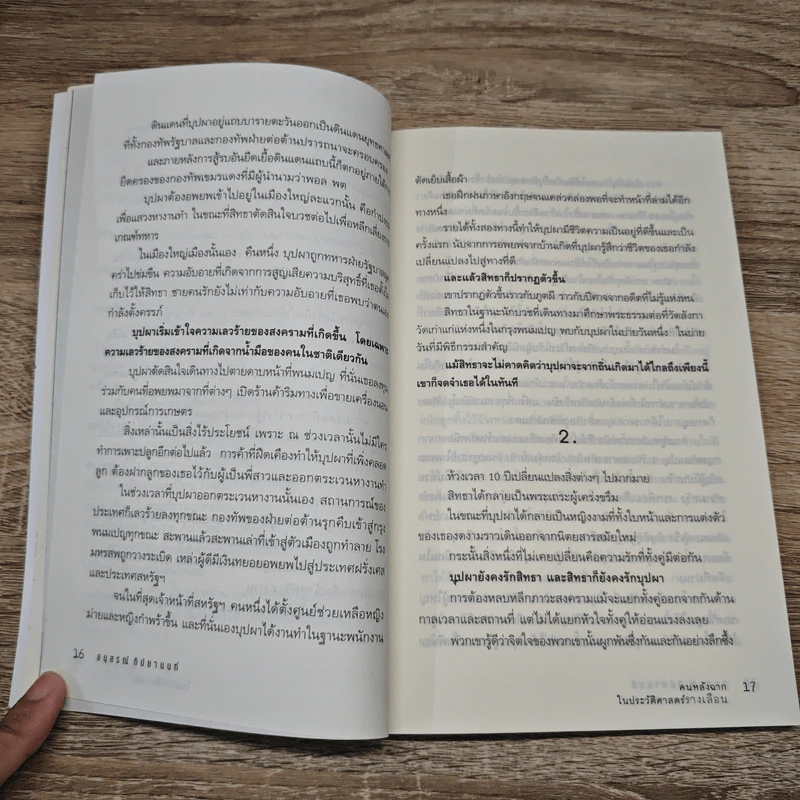 ดินแดนที่บุปผาอยู่แถบบารายตะวันออกเป็นดินแดนยุทธศาสตร์
ที่ทั้งกองทัพรัฐบาลและกองทัพฝ่ายต่อต้านปรารถนาจะครอบครอง
และภายหลังการสู้รบอันยืดเยื้อดินแดนแถบนี้ก็ตกอยู่ภายใต้การ
ยึดครองของกองทัพเขมรแดงที่มีผู้นำนามว่าพอล พต
บุปผาต้องอพยพเข้าไปอยู่ในเมืองใหญ่ละแวกนั้น คือกำปง
เพื่อแสวงหางานทำ ในขณะที่สิทธาตัดสินใจบวชต่อไปเพื่อหลีกเลี่ยงการ
เกณฑ์ทหาร
ในเมืองใหญ่เมืองนั้นเอง คืนหนึ่ง บุปผาถูกทหารฝ่ายรัฐบาลฉุด
คร่าไปข่มขืน ความอับอายที่เกิดจากการสูญเสียความบริสุทธิ์ที่เธอตั้งใจ
เก็บไว้ให้สิทธา ชายคนรักยังไม่เท่ากับความอับอายที่เธอพบว่าตนเอง
กำลังตั้งครรภ์
บุปผาเริ่มเข้าใจความเลวร้ายของสงครามที่เกิดขึ้น โดยเฉพาะ
ความเลวร้ายของสงครามที่เกิดจากน้ำมือของคนในชาติเดียวกัน
บุปผาตัดสินใจเดินทางไปตายดาบหน้าที่พนมเปญ ที่นั่นเธอลงทุน
ร่วมกับคนที่อพยพมาจากที่ต่างๆ เปิดร้านค้าริมทางเพื่อขายเครื่องนอน
และอุปกรณ์การเกษตร
สิ่งเหล่านั้นเป็นสิ่งไร้ประโยชน์ เพราะ ณ ช่วงเวลานั้นไม่มีใคร
ทำการเพาะปลูกอีกต่อไปแล้ว การค้าที่ฝืดเคืองทำให้บุปผาที่เพิ่งคลอด
ลูก ต้องฝากลูกของเธอไว้กับผู้เป็นพี่สาวและออกตระเวนหางานทำ
ในช่วงเวลาที่บุปผาออกตระเวนหางานนั้นเอง สถานการณ์ของ
ประเทศก็เลวร้ายลงทุกขณะ กองทัพของฝ่ายต่อต้านรุกคืบเข้าสู่กรุง
พนมเปญทุกขณะ สะพานแล้วสะพานเล่าที่เข้าสู่ตัวเมืองถูกทำลาย โรง
มหรสพถูกวางระเบิด เหล่าผู้ดีมีเงินทยอยอพยพไปสู่ประเทศฝรั่งเศส
และประเทศสหรัฐฯ
จนในที่สุดเจ้าหน้าที่สหรัฐฯ คนหนึ่งได้ตั้งศูนย์ช่วยเหลือหญิง
ม่ายและหญิงกำพร้าขึ้น และที่นั่นเองบุปผาได้งานทำในฐานะพนักงาน
16 อนุสรณ์ ติปยานนท์
ตัดเย็บเสื้อผ้า
เธอฝึกฝนภาษาอังกฤษจนแคล่วคล่องพอที่จะทำหน้าที่ล่ามได้อีก
ทางหนึ่ง
รายได้ทั้งสองทางนี้ทำให้บุปผามีชีวิตความเป็นอยู่ที่ดีขึ้นและเป็น
ครั้งแรก นับจากการอพยพจากบ้านเกิดที่บุปผารู้สึกว่าชีวิตของเธอกำลัง
เปลี่ยนแปลงไปสู่ทางที่ดี
และแล้วสิทธาก็ปรากฏตัวขึ้น
เขาปรากฏตัวขึ้นราวกับภูตผี ราวกับปีศาจจากอดีตที่ไม่รู้แห่งหน
สิทธาในฐานะนักบวชที่เดินทางมาศึกษาพระธรรมต่อที่วัดลังกา
วัดเก่าแก่แห่งหนึ่งในกรุงพนมเปญ พบกับบุปผาในบ่ายวันหนึ่ง ในบ่าย
วันที่มีพิธีกรรมสำคัญ
แม้สิทธาจะไม่คาดคิดว่าบุปผาจะจากถิ่นเกิดมาได้ไกลถึงเพียงนี้
เขาก็จดจำเธอได้ในทันที
2.
ห้วงเวลา 10 ปีเปลี่ยนแปลงสิ่งต่างๆ ไปมากมาย
สิทธาได้กลายเป็นพระเถระผู้เคร่งขรึม
ในขณะที่บุปผาได้กลายเป็นหญิงงามที่ทั้งใบหน้าและการแต่งตัว
ของเธองดงามราวเดินออกจากนิตยสารสมัยใหม่
กระนั้นสิ่งหนึ่งที่ไม่เคยเปลี่ยนคือความรักที่ทั้งคู่มีต่อกัน
บุปผายังคงรักสิทธา และสิทธาก็ยังคงรักบุปผา
การต้องหลบหลีกภาวะสงครามแม้จะแยกทั้งคู่ออกจากกันด้าน
กาลเวลาและสถานที่ แต่ไม่ได้แยกหัวใจทั้งคู่ให้อ่อนแรงลงเลย
พวกเขารู้ดีว่าจิตใจของพวกเขานั้นผูกพันซึ่งกันและกันอย่างลึกซึ้ง
คนหลังฉาก 17
ในประวัติศาสตร์รางเลือน